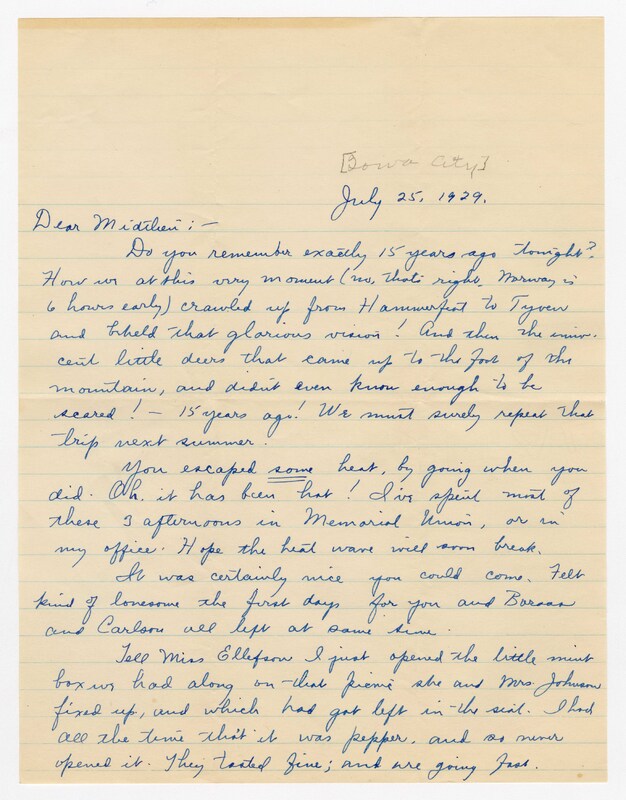 [Iowa City]
July 25, 1929.
Dear Midtlien:-
Do you remember exactly 15 years ago tonight?
How we at this very moment (no, that's right. Norway is
6 hours early) crawled up from Hammerfest to Tyven
and beheld that glorious vision! And then the inno-
cent little deers that came up to the foot of the
mountain, and didn't even know enough to be
scared! - 15 years ago! We must surely repeat that
trip next summer.
You escaped some heat, by going when you
did. Oh, it has been hot! I've spent most of
these 3 afternoons in Memorial Union, or in
my office. Hope the heat wave will soon break.
It was certainly nice you could come. Felt
kind of lonesome the first days for you and
and Carlson all left at same time.
Tell Miss Ellefson I just opened the little mint
box we had along on that picnic she and Mrs. Johnson
fixed up, and which had got left in the seat. I had
all the time that it was pepper, and so never
opened it. They tasted fine; and are going fast.